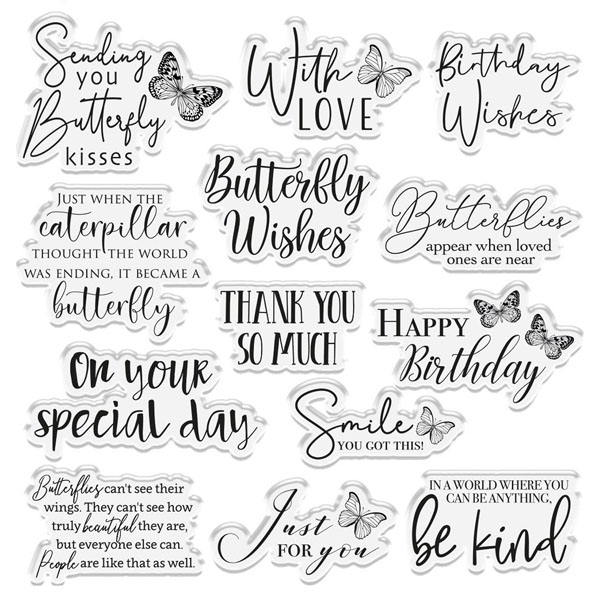 Sending
you
Butterfly
kisses
With
LOVE
Birthday
Wishes
JUST WHEN THE
caterpillar
THOUGHT THE WORLD
WAS ENDING, IT BECAME A
butterfly
Butterfly
Wishes
Butterflies
appear when loved
ones are near
THANK YOU
SO MUCH
HAPPY
Birthday
On your
special day
Smile
YOU GOT THIS!
Butterflies can't see their
wings. They can't see how
truly beautiful they are,
but everyone else can.
People are like that as well.
Just
FOR you
IN A WORLD WHERE YOU
CAN BE ANYTHING,
be kind